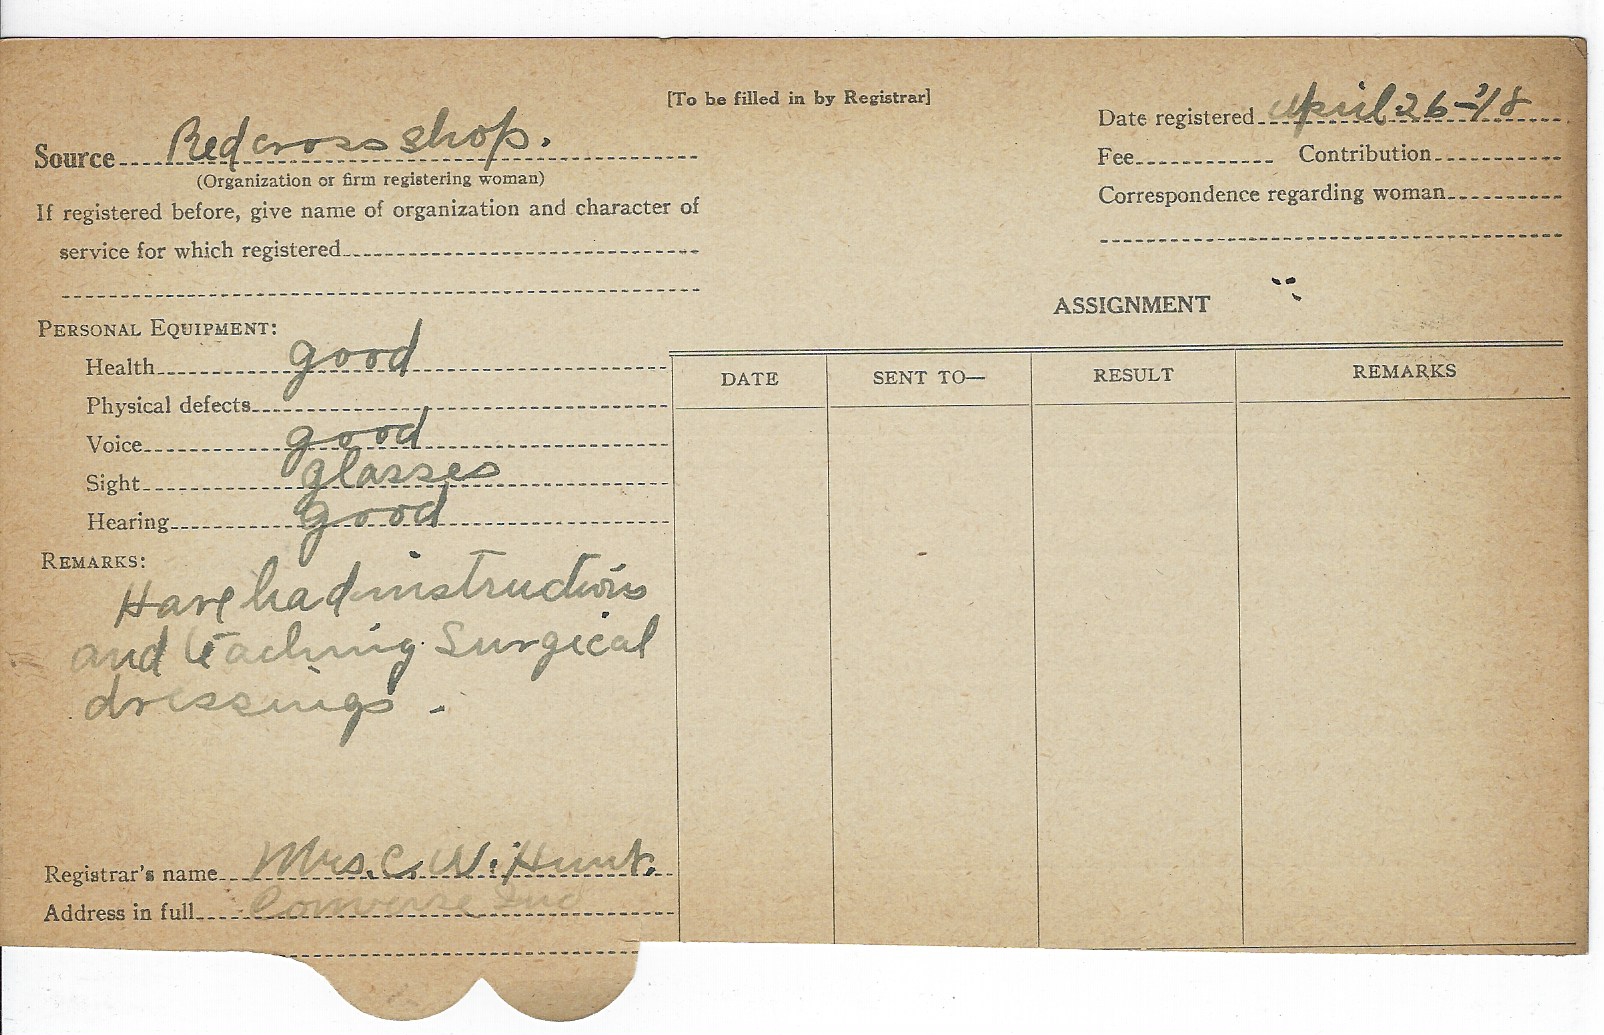 [To be filled in by Registrar]
Source Red cross shop.
(Organization or firm registering woman)
If registered before, give name of organization and character of
service for which registered
Date registered April 26-'18
Fee Contribution
Correspondence regarding woman
PERSONAL EQUIPMENT:
Health good
Physical defects
Voice good
Sight glasses
Hearing good
REMARKS:
Have had instructions
and teaching Surgical
dressings.
Registrar's name Mrs. C. W. Hunt.
Address in full Converse Ind
ASSIGNMENT
DATE SENT TO— RESULT REMARKS